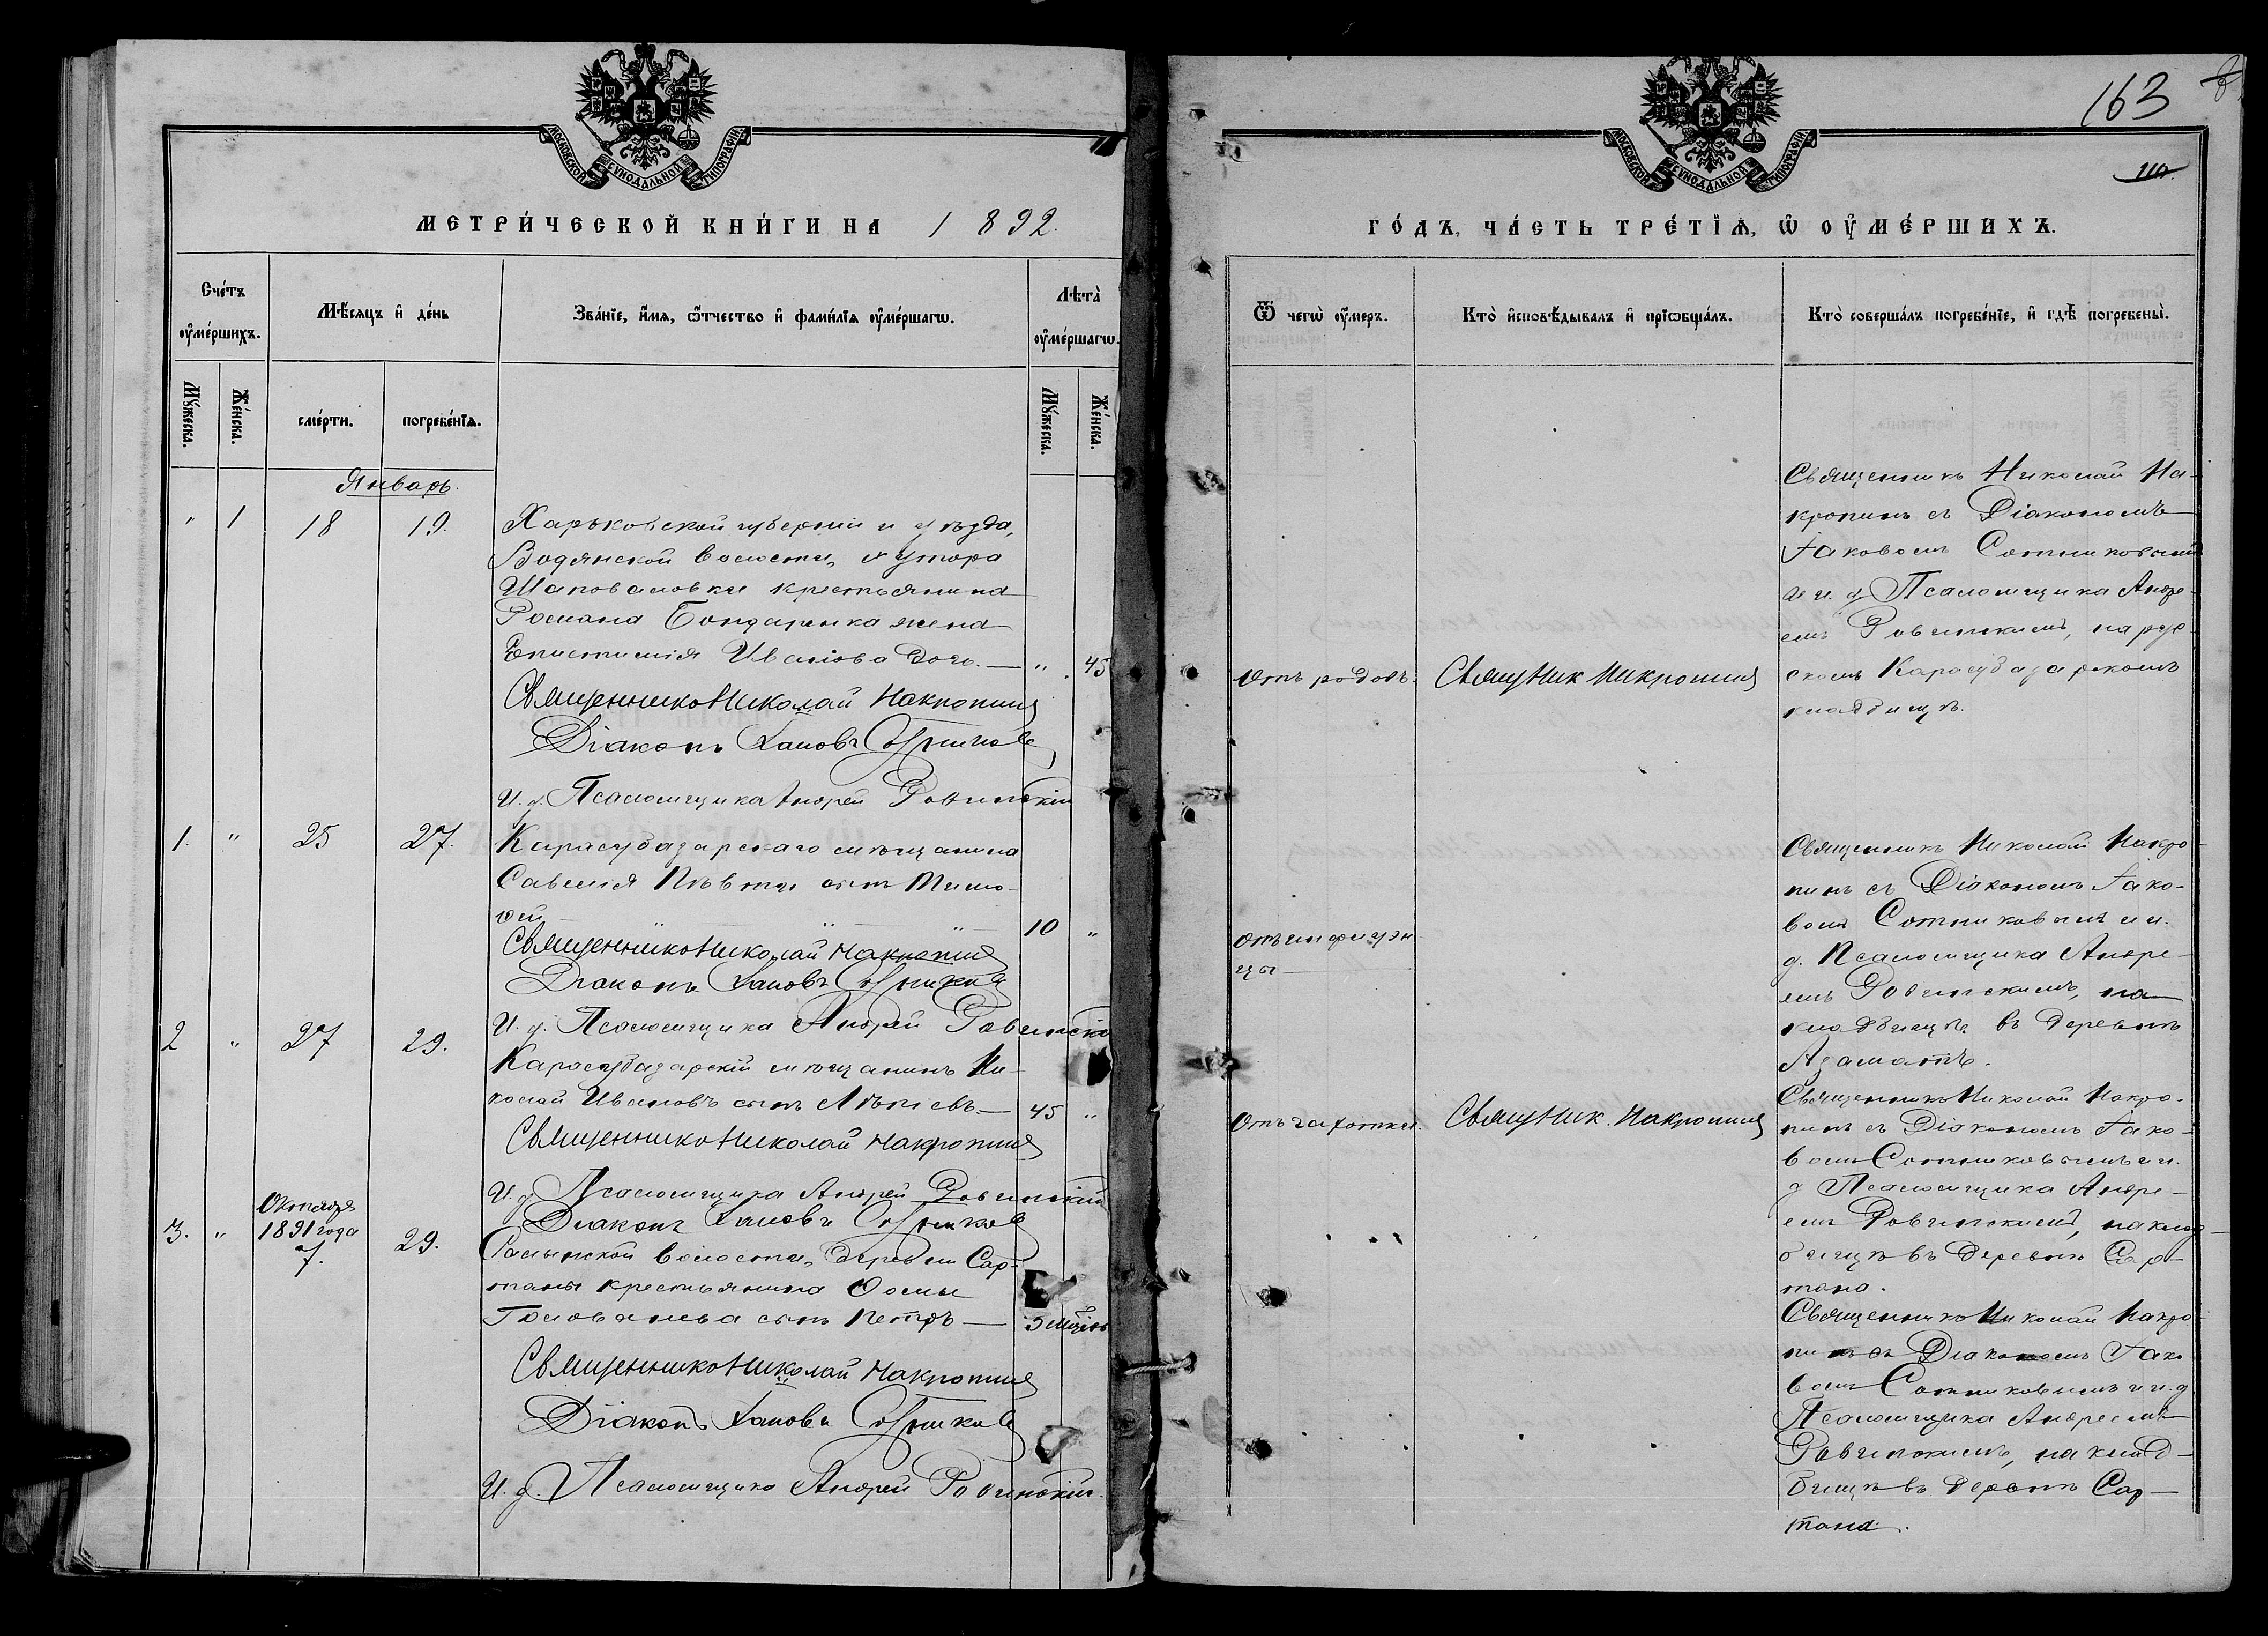 163
МОСКОВСКОЙ СѴНОДАЛЬНОЙ ТИПОГРАФІИ
МЕТРИ́ЧЕСКОЙ КНИ́ГИ НА 1892.
Сче́тъ ᲂу҆ме́ршихъ.
Мѣ́сяцъ и҆ де́нь
Зва́нїе, и҆́мѧ, ѻ҆́тчество и҆ фамѝлїѧ ᲂу҆ме́ршагѡ.
Лѣта̀ ᲂу҆ме́ршагѡ.
Мꙋ́жеска.
Же́нска.
сме́рти.
погребе́нїѧ.
Мꙋ́жеска.
Же́нска.
Январь.
" 1 18 19.
Харьковской губерніи и уѣзда,
Водянской волости, хутора
Шаповаловки крестьянина
Романа Бондаренка жена
Епистимія Иванова дочь. — " 45
Священникъ Николай Макропини
Діаконъ Іаковъ Сотниковъ
И. д. Псаломщика Андрей Ровинскій
1. " 25 27.
Карасубазарскаго мѣщанина
Савелія сынъ Тимо-
ѳей — " " " 10 "
Священникъ Николай Макропини
Діаконъ Іаковъ Сотниковъ
И. д. Псаломщика Андрей Ровинскій
2 " 27 29.
Карасубазарскій мѣщанинъ Ни-
колай Ивановъ сынъ — 45 "
Священникъ Николай Макропини
И. д. Псаломщика Андрей Ровинскій
Діаконъ Іаковъ Сотниковъ
3. " Октября
1891 года
7. 29.
волости, деревни Сар-
таны крестьянина Ѳомы
сынъ Петръ —
Священникъ Николай Макропини
Діаконъ Іаковъ Сотниковъ
И. д. Псаломщика Андрей Ровинскій.
МОСКОВСКОЙ СѴНОДАЛЬНОЙ ТИПОГРАФІИ
ГО́ДЪ, ЧА́СТЬ ТРЕ́ТЇѦ, Ѡ҆ ОУ҆МЕ́РШИХЪ.
Ѿ чегѡ̀ ᲂу҆́меръ.
Кто̀ и҆сповѣ́дывалъ и҆ прїѡбща́лъ.
Кто̀ соверша́лъ погребе́нїе, и҆ гдѣ̀ погребены̀.
Отъ родовъ.
Свящ Ник Макропини
Священникъ Николай Ма-
кропинъ съ Діакономъ
Іаковомъ Сотниковымъ
и и. д. Псаломщика Андре-
емъ Ровинскимъ, на рус-
скомъ Карасубазарскомъ
кладбищѣ.
Отъ инфлуэн
цы —
Священникъ Николай Макро-
пинъ съ Діакономъ Іако-
вомъ Сотниковымъ и и.
д. Псаломщика Андре-
емъ Ровинскимъ, на
кладбищѣ въ деревнѣ
Азаматъ.
Отъ чахотки.
Свящ Ник. Макропини
Священникъ Николай Макро-
пинъ съ Діакономъ Іако-
вомъ Сотниковымъ и и.
д Псаломщика Андре-
емъ Ровинскимъ, на клад-
бищѣ въ деревнѣ Сар-
тана.
Священникъ Николай Макро-
пинъ съ Діакономъ Іако-
вомъ Сотниковымъ и и. д
Псаломщика Андреемъ
Ровинскимъ, на клад-
бищѣ въ деревнѣ Сар-
тана.